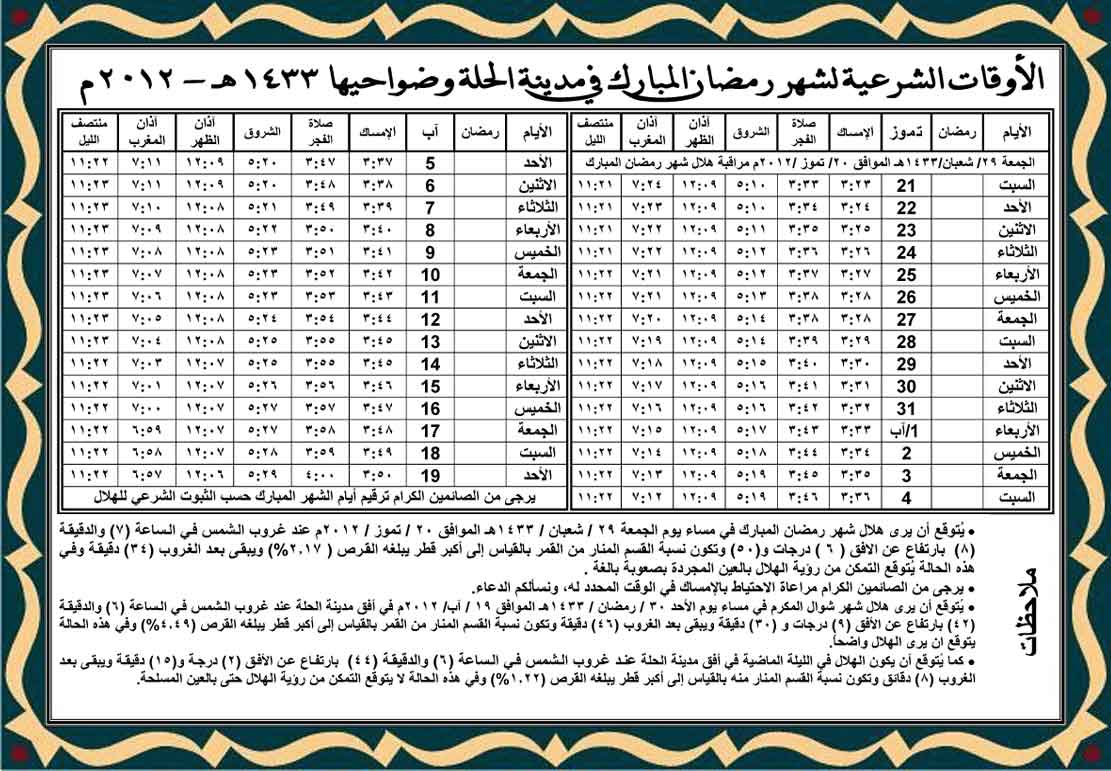 الأوقات الشرعية لشهر رمضان المبارك في مدينة الحلة وضواحيها ١٤٣٣ هـ – ٢٠١٢ م
الأيام رمضان تموز الإمساك صلاة الفجر الشروق أذان الظهر أذان المغرب منتصف الليل
الجمعة ٢٩/ شعبان/١٤٣٣هـ الموافق ٢٠/ تموز /٢٠١٢م مراقبة هلال شهر رمضان المبارك
السبت 21 ٣:٢٣ ٣:٣٣ ٥:١٠ ١٢:٠٩ ٧:٢٤ ١١:٢١
الأحد 22 ٣:٢٤ ٣:٣٤ ٥:١٠ ١٢:٠٩ ٧:٢٣ ١١:٢١
الاثنين 23 ٣:٢٥ ٣:٣٥ ٥:١١ ١٢:٠٩ ٧:٢٢ ١١:٢١
الثلاثاء 24 ٣:٢٦ ٣:٣٦ ٥:١٢ ١٢:٠٩ ٧:٢٢ ١١:٢١
الأربعاء 25 ٣:٢٧ ٣:٣٧ ٥:١٢ ١٢:٠٩ ٧:٢١ ١١:٢٢
الخميس 26 ٣:٢٨ ٣:٣٨ ٥:١٣ ١٢:٠٩ ٧:٢١ ١١:٢٢
الجمعة 27 ٣:٢٨ ٣:٣٨ ٥:١٤ ١٢:٠٩ ٧:٢٠ ١١:٢٢
السبت 28 ٣:٢٩ ٣:٣٩ ٥:١٤ ١٢:٠٩ ٧:١٩ ١١:٢٢
الأحد 29 ٣:٣٠ ٣:٤٠ ٥:١٥ ١٢:٠٩ ٧:١٨ ١١:٢٢
الاثنين 30 ٣:٣١ ٣:٤١ ٥:١٦ ١٢:٠٩ ٧:١٧ ١١:٢٢
الثلاثاء 31 ٣:٣٢ ٣:٤٢ ٥:١٦ ١٢:٠٩ ٧:١٦ ١١:٢٢
الأربعاء 1/آب ٣:٣٣ ٣:٤٣ ٥:١٧ ١٢:٠٩ ٧:١٥ ١١:٢٢
الخميس 2 ٣:٣٤ ٣:٤٤ ٥:١٨ ١٢:٠٩ ٧:١٤ ١١:٢٢
الجمعة 3 ٣:٣٥ ٣:٤٥ ٥:١٩ ١٢:٠٩ ٧:١٣ ١١:٢٢
السبت 4 ٣:٣٦ ٣:٤٦ ٥:١٩ ١٢:٠٩ ٧:١٢ ١١:٢٢
الأيام رمضان آب الإمساك صلاة الفجر الشروق أذان الظهر أذان المغرب منتصف الليل
الأحد 5 ٣:٣٧ ٣:٤٧ ٥:٢٠ ١٢:٠٩ ٧:١١ ١١:٢٢
الاثنين 6 ٣:٣٨ ٣:٤٨ ٥:٢٠ ١٢:٠٩ ٧:١١ ١١:٢٣
الثلاثاء 7 ٣:٣٩ ٣:٤٩ ٥:٢١ ١٢:٠٨ ٧:١٠ ١١:٢٣
الأربعاء 8 ٣:٤٠ ٣:٥٠ ٥:٢٢ ١٢:٠٨ ٧:٠٩ ١١:٢٣
الخميس 9 ٣:٤١ ٣:٥١ ٥:٢٣ ١٢:٠٨ ٧:٠٨ ١١:٢٣
الجمعة 10 ٣:٤٢ ٣:٥٢ ٥:٢٣ ١٢:٠٨ ٧:٠٧ ١١:٢٣
السبت 11 ٣:٤٣ ٣:٥٣ ٥:٢٣ ١٢:٠٨ ٧:٠٦ ١١:٢٣
الأحد 12 ٣:٤٤ ٣:٥٤ ٥:٢٤ ١٢:٠٨ ٧:٠٥ ١١:٢٣
الاثنين 13 ٣:٤٥ ٣:٥٥ ٥:٢٥ ١٢:٠٨ ٧:٠٤ ١١:٢٣
الثلاثاء 14 ٣:٤٥ ٣:٥٥ ٥:٢٥ ١٢:٠٧ ٧:٠٣ ١١:٢٢
الأربعاء 15 ٣:٤٦ ٣:٥٦ ٥:٢٦ ١٢:٠٧ ٧:٠١ ١١:٢٢
الخميس 16 ٣:٤٧ ٣:٥٧ ٥:٢٧ ١٢:٠٧ ٧:٠٠ ١١:٢٢
الجمعة 17 ٣:٤٨ ٣:٥٨ ٥:٢٧ ١٢:٠٧ ٦:٥٩ ١١:٢٢
السبت 18 ٣:٤٩ ٣:٥٩ ٥:٢٨ ١٢:٠٧ ٦:٥٨ ١١:٢٢
الأحد 19 ٣:٥٠ ٤:٠٠ ٥:٢٩ ١٢:٠٦ ٦:٥٧ ١١:٢٢
يرجى من الصائمين الكرام ترقيم أيام الشهر المبارك حسب الثبوت الشرعي للهلال
ملاحظات
• يُتوقع أن يرى هلال شهر رمضان المبارك في مساء يوم الجمعة ٢٩ / شعبان / ١٤٣٣هـ الموافق ٢٠ / تموز / ٢٠١٢م عند غروب الشمس في الساعة (٧) والدقيقة
(٨) بارتفاع عن الافق ( ٦ ) درجات و(٥٠) وتكون نسبة القسم المنار من القمر بالقياس إلى أكبر قطر يبلغه القرص ( ٢.١٧%) ويبقى بعد الغروب (٣٤) دقيقة وفي
هذه الحالة يُتوقع التمكن من رؤية الهلال بالعين المجردة بصعوبة بالغة .
• يرجى من الصائمين الكرام مراعاة الاحتياط بالإمساك في الوقت المحدد له، ونسألكم الدعاء.
• يُتوقع أن يرى هلال شهر شوال المكرم في مساء يوم الأحد ٣٠ / رمضان / ١٤٣٣هـ الموافق ١٩ / آب/ ٢٠١٢م في أفق مدينة الحلة عند غروب الشمس في الساعة (٦) والدقيقة
(٤٢) بارتفاع عن الأفق (٩) درجات و (٣٠) دقيقة ويبقى بعد الغروب (٤٦) دقيقة وتكون نسبة القسم المنار من القمر بالقياس إلى أكبر قطر يبلغه القرص (٤.٤٩%) وفي هذه الحالة
يتوقع ان يرى الهلال واضحاً.
• كما يُتوقع أن يكون الهلال في الليلة الماضية في أفق مدينة الحلة عند غروب الشمس في الساعة (٦) والدقيقة (٤٤) بارتفاع عن الأفق (٢) درجة و(١٥) دقيقة ويبقى بعد
الغروب (٨) دقائق وتكون نسبة القسم المنار منه بالقياس إلى أكبر قطر يبلغه القرص (١.٢٢%) وفي هذه الحالة لا يتوقع التمكن من رؤية الهلال حتى بالعين المسلحة.